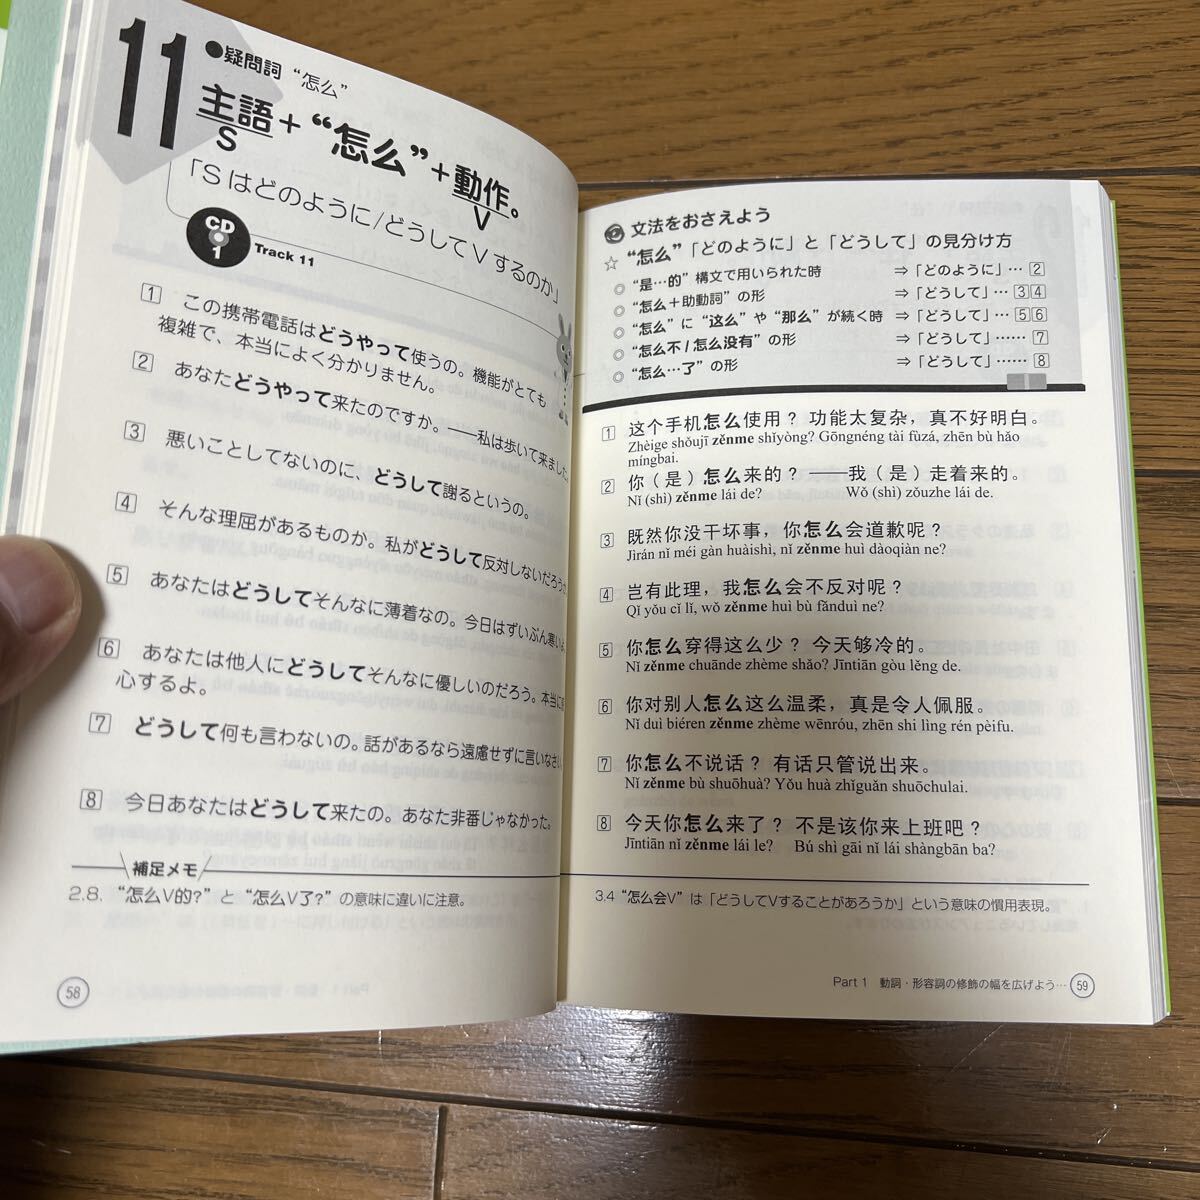 11
●疑問詞 “怎么”
主語＋“怎么”＋動作。
S V
「S はどのように/どうして V するのか」
CD 1
Track 11
1 この携帯電話はどうやって使うの。機能がとても
複雑で、本当によく分かりません。
2 あなたどうやって来たのですか。——私は歩いて来ました
3 悪いことしてないのに、どうして謝るというの。
4 そんな理屈があるものか。私がどうして反対しないだろう
5 あなたはどうしてそんなに薄着なの。今日はずいぶん寒い
6 あなたは他人にどうしてそんなに優しいのだろう。本当に
心するよ。
7 どうして何も言わないの。話があるなら遠慮せずに言いなさい
8 今日あなたはどうして来たの。あなた非番じゃなかった。
補足メモ
2.8. “怎么V的?” と “怎么V了?” の意味に違いに注意。
58
文法をおさえよう
☆ “怎么”「どのように」と「どうして」の見分け方
◎ “是…的” 構文で用いられた時 ⇒「どのように」… 2
◎ “怎么＋助動詞” の形 ⇒「どうして」… 3 4
◎ “怎么” に “这么” や “那么” が続く時 ⇒「どうして」… 5 6
◎ “怎么不 / 怎么没有” の形 ⇒「どうして」…… 7
◎ “怎么…了” の形 ⇒「どうして」…… 8
1 这个手机怎么使用？ 功能太复杂，真不好明白。
Zhèige shǒujī zěnme shǐyòng? Gōngnéng tài fùzá, zhēn bù hǎo
míngbai.
2 你（是）怎么来的？ ——我（是）走着来的。
Nǐ (shì) zěnme lái de? Wǒ (shì) zǒuzhe lái de.
3 既然你没干坏事，你怎么会道歉呢？
Jìrán nǐ méi gàn huàishì, nǐ zěnme huì dàoqiàn ne?
4 岂有此理，我怎么会不反对呢？
Qǐ yǒu cǐ lǐ, wǒ zěnme huì bù fǎnduì ne?
5 你怎么穿得这么少？ 今天够冷的。
Nǐ zěnme chuānde zhème shǎo? Jīntiān gòu lěng de.
6 你对别人怎么这么温柔，真是令人佩服。
Nǐ duì biéren zěnme zhème wēnróu, zhēn shi lìng rén pèifu.
7 你怎么不说话？ 有话只管说出来。
Nǐ zěnme bù shuōhuà? Yǒu huà zhǐguǎn shuōchulai.
8 今天你怎么来了？ 不是该你来上班吧？
Jīntiān nǐ zěnme lái le? Bú shì gāi nǐ lái shàngbān ba?
3.4 “怎么会V” は「どうしてVすることがあろうか」という意味の慣用表現。
Part 1 動詞・形容詞の修飾の幅を広げよう… 59